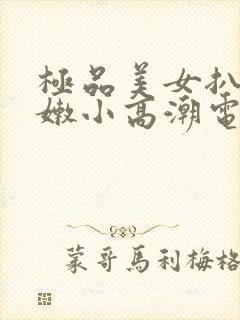 極品美女扒
嫩小高潮電
蒙哥馬利梅格